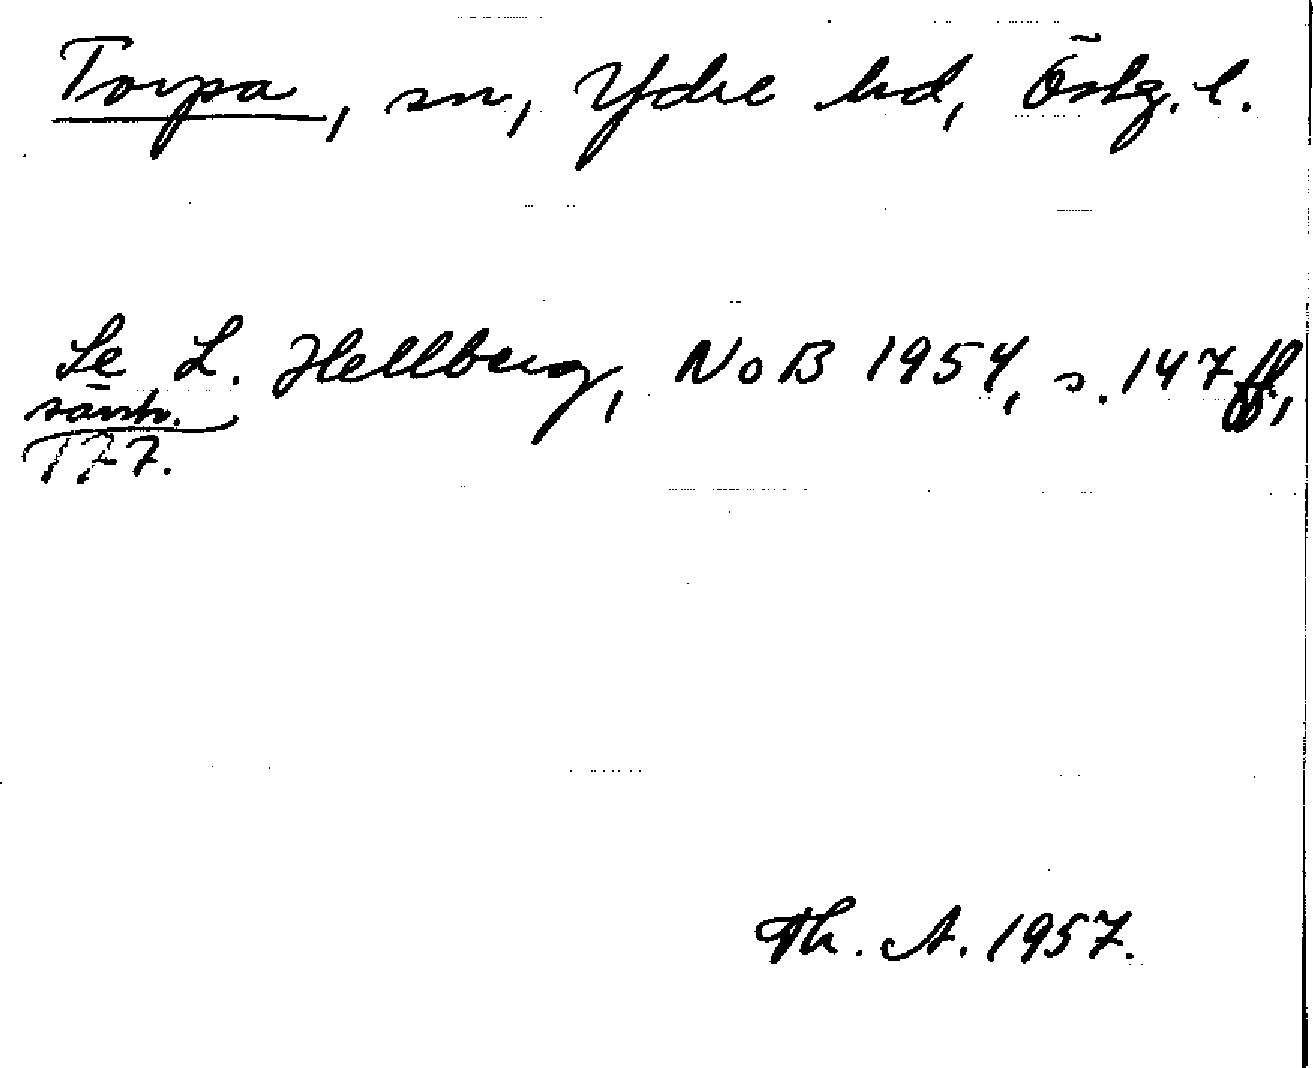 Torpa, sn, Ydre hd, Östg. l.
Se L. Hellberg, NoB 1954, s. 147 ff,
särsk.
177.
Th. A. 1957.